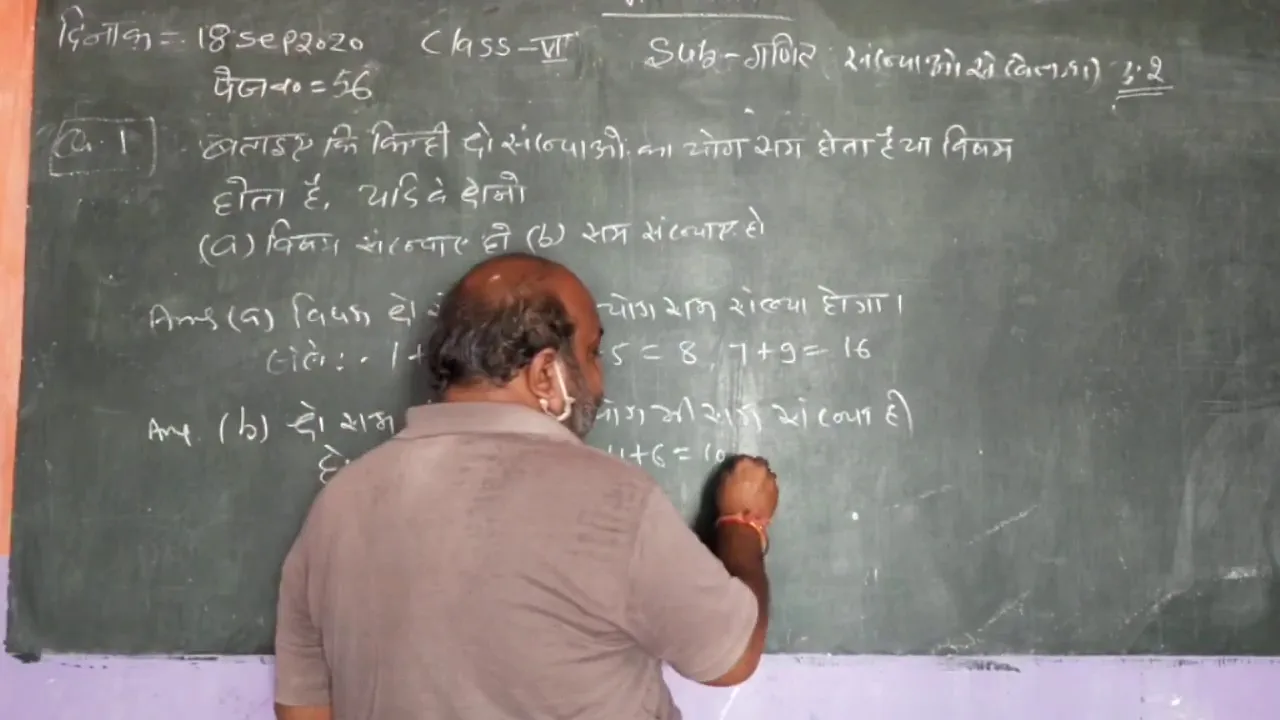 दिनांक = 18 Sep 2020 Class - VI Sub - गणित संख्याओ से खेलना
पेज न० = 56
Q. 1 बताइए कि किन्ही दो संख्याओ का योग सम होता है या विषम
होता है, यदि वे दोनो
(a) विषम संख्याए हो (b) सम संख्याए हो
Ans (a) विषम दो योग सम संख्या होगा।
जैसे :- 1+ 5 = 8, 7+9 = 16
Ans. (b) दो सम योग भी सम संख्या ही
4+6 = 10